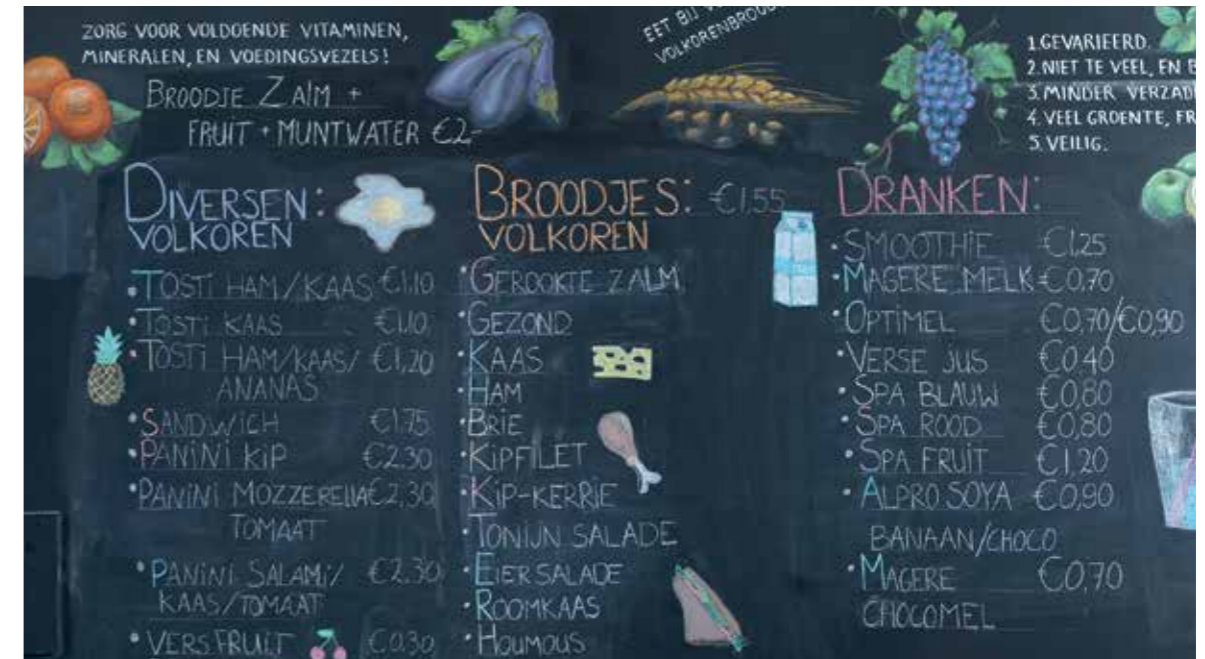 ZORG VOOR VOLDOENDE VITAMINEN,
MINERALEN, EN VOEDINGSVEZELS!
BROODJE ZALM +
FRUIT + MUNTWATER €2-
EET BIJ
VOLKORENBROOD
1. GEVARIEERD.
2. NIET TE VEEL, EN
3. MINDER
4. VEEL GROENTE,
5. VEILIG.
DIVERSEN:
VOLKOREN
• TOSTI HAM/KAAS €1,10
• TOSTI KAAS €1,10
• TOSTI HAM/KAAS/ €1,20
ANANAS
• SANDWICH €1.75
• PANINI KIP €2.30
• PANINI MOZZERELLA €2,30
TOMAAT
• PANINI SALAMI/ €2.30
KAAS/TOMAAT
• VERS FRUIT €0.30
BROODJES: €1.55
VOLKOREN
• GEROOKTE ZALM
• GEZOND
• KAAS
• HAM
• BRIE
• KIPFILET
• KIP-KERRIE
• TONIJN SALADE
• EIERSALADE
• ROOMKAAS
• HOUMOUS
DRANKEN:
• SMOOTHIE €1.25
• MAGERE MELK €0.70
• OPTIMEL €0,70/€0,90
• VERSE JUS €0.40
• SPA BLAUW €0,80
• SPA ROOD €0,80
• SPA FRUIT €1,20
• ALPRO SOYA €0,90
BANAAN/CHOCO
• MAGERE €0,70
CHOCOMEL